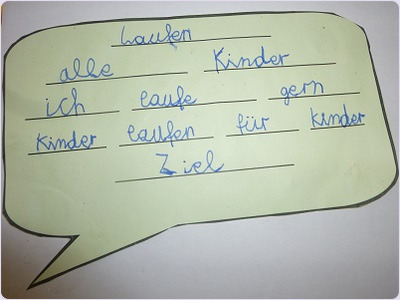 Laufen
alle Kinder
ich laufe gern
Kinder laufen für kinder
Ziel